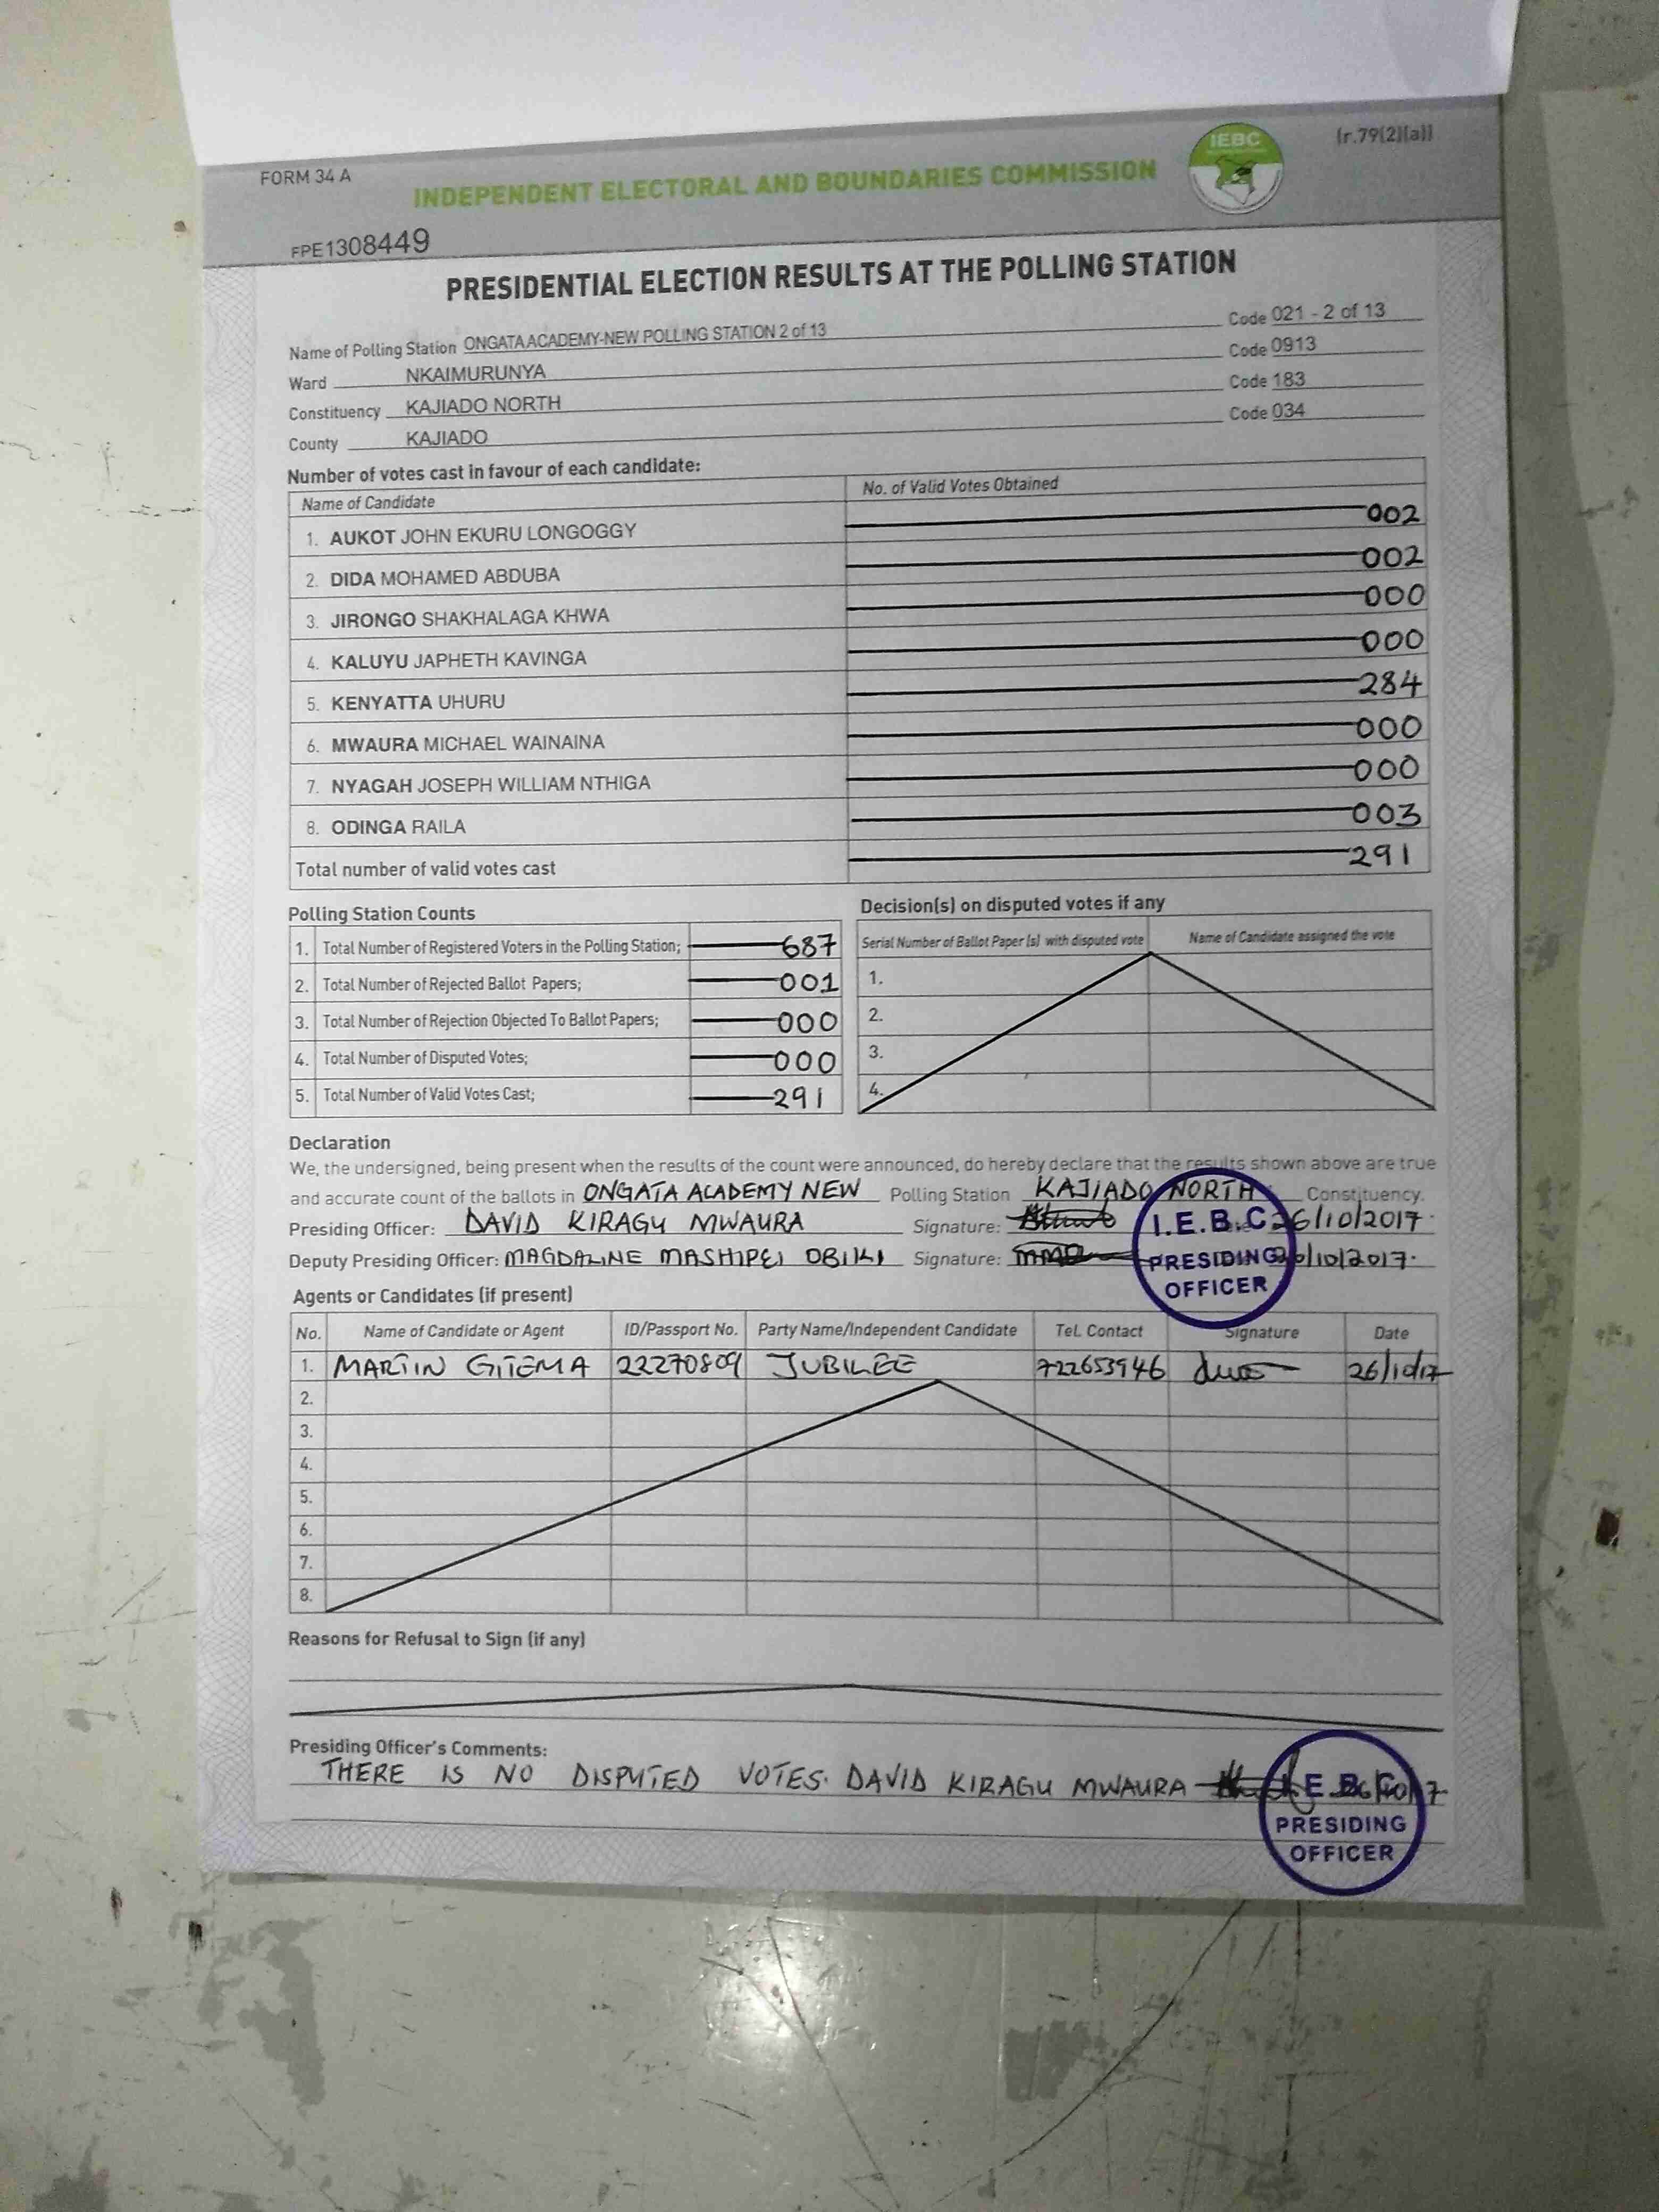 FORM 34 A
INDEPENDENT ELECTORAL AND BOUNDARIES COMMISSION
IEBC
(r.79(2)(a))
FPE1308449
PRESIDENTIAL ELECTION RESULTS AT THE POLLING STATION
Name of Polling Station ONGATA ACADEMY-NEW POLLING STATION 2 of 13 Code 021 - 2 of 13
Ward NKAIMURUNYA Code 0913
Constituency KAJIADO NORTH Code 183
County KAJIADO Code 034
Number of votes cast in favour of each candidate:
Name of Candidate No. of Valid Votes Obtained
1. AUKOT JOHN EKURU LONGOGGY 002
2. DIDA MOHAMED ABDUBA 002
3. JIRONGO SHAKHALAGA KHWA 000
4. KALUYU JAPHETH KAVINGA 000
5. KENYATTA UHURU 284
6. MWAURA MICHAEL WAINAINA 000
7. NYAGAH JOSEPH WILLIAM NTHIGA 000
8. ODINGA RAILA 003
Total number of valid votes cast 291
Polling Station Counts
1. Total Number of Registered Voters in the Polling Station; 687
2. Total Number of Rejected Ballot Papers; 001
3. Total Number of Rejection Objected To Ballot Papers; 000
4. Total Number of Disputed Votes; 000
5. Total Number of Valid Votes Cast; 291
Decision(s) on disputed votes if any
Serial Number of Ballot Paper (s) with disputed vote Name of Candidate assigned the vote
1.
2.
3.
4.
Declaration
We, the undersigned, being present when the results of the count were announced, do hereby declare that the results shown above are true
and accurate count of the ballots in ONGATA ACADEMY NEW Polling Station KAJIADO NORTH Constituency.
Presiding Officer: DAVID KIRAGU MWAURA Signature: 26/10/2017
Deputy Presiding Officer: MAGDALINE MASHIPEI OBIKI Signature: 26/10/2017.
I.E.B.C
PRESIDING
OFFICER
Agents or Candidates (if present)
No. Name of Candidate or Agent ID/Passport No. Party Name/Independent Candidate Tel. Contact Signature Date
1. MARTIN GITEMA 22270809 JUBILEE 722653946 26/10/17
2.
3.
4.
5.
6.
7.
8.
Reasons for Refusal to Sign (if any)
Presiding Officer's Comments:
THERE IS NO DISPUTED VOTES. DAVID KIRAGU MWAURA 26/10/17
I.E.B.C
PRESIDING
OFFICER